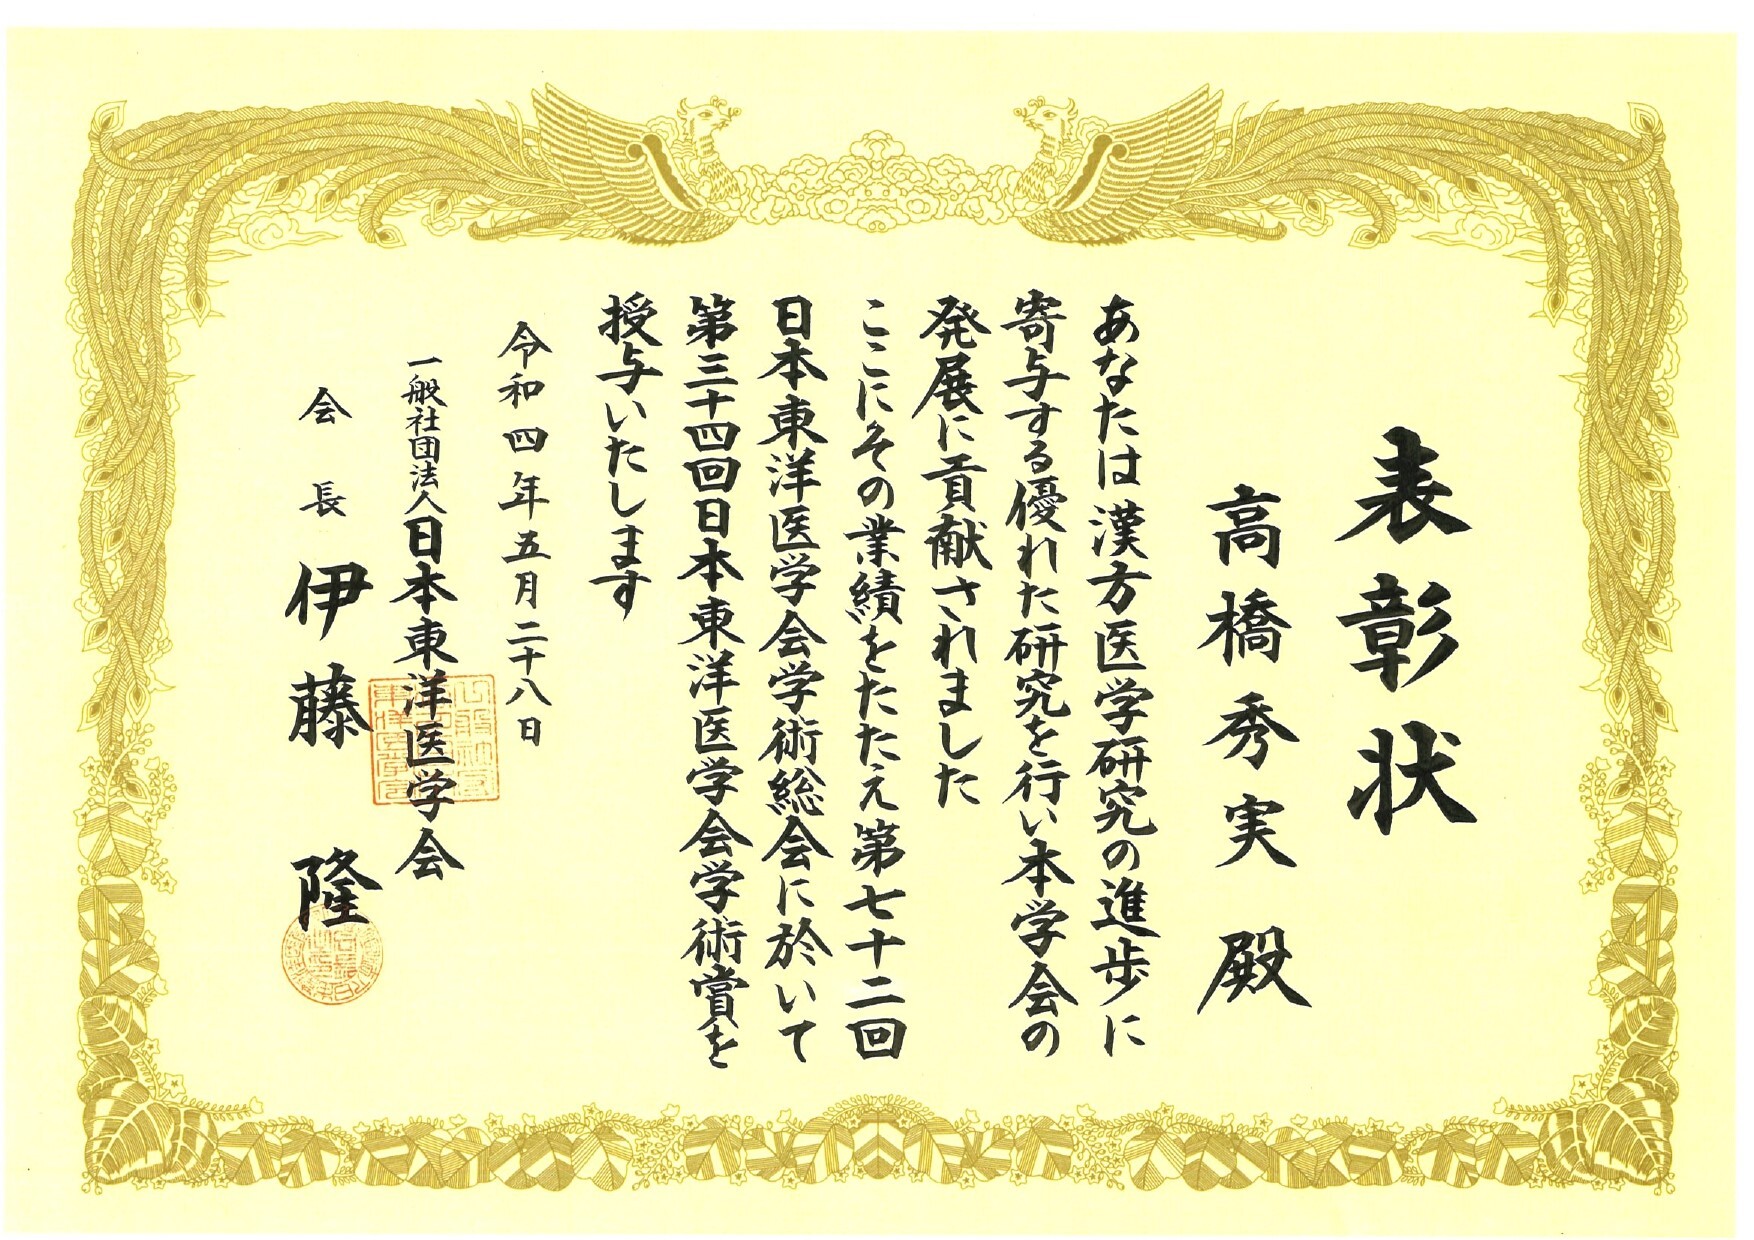 表彰状
高橋秀実 殿
あなたは漢方医学研究の進歩に
寄与する優れた研究を行い本学会の
発展に貢献されました
ここにその業績をたたえ第七十二回
日本東洋医学会学術総会に於いて
第三十四回日本東洋医学会学術賞を
授与いたします
令和四年五月二十八日
一般社団法人日本東洋医学会
会長 伊藤 隆